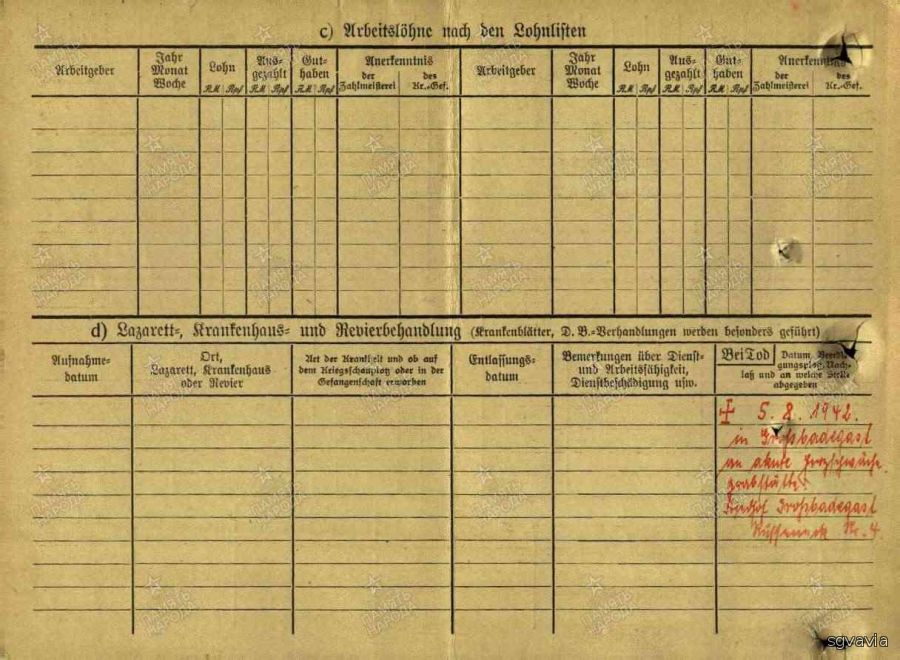 c) Arbeitslöhne nach den Lohnlisten
Arbeitgeber
Jahr
Monat
Woche
Lohn
RM Rpf
Aus-
gezahlt
RM Rpf
Gut-
haben
RM Rpf
Anerkenntnis
der
Zahlmeisterei
des
Kr.-Gef.
Arbeitgeber
Jahr
Monat
Woche
Lohn
RM Rpf
Aus-
gezahlt
RM Rpf
Gut-
haben
RM Rpf
Anerkenntnis
der
Zahlmeisterei
des
Kr.-Gef.
d) Lazarett-, Krankenhaus- und Revierbehandlung (Krankenblätter, D. B.-Verhandlungen werden besonders geführt)
Aufnahme-
datum
Ort,
Lazarett, Krankenhaus
oder Revier
Art der Krankheit und ob auf
dem Kriegsschauplatz oder in der
Gefangenschaft erworben
Entlassungs-
datum
Bemerkungen über Dienst-
und Arbeitsfähigkeit,
Dienstbeschädigung usw.
Bei Tod
Datum, Beerdi-
gungsplatz, Nach-
laß und an welche Stelle
abgegeben
5. 8. 1942.
in Großbadegast
an akute Herzschwäche.
Grabstätte:
Friedhof Großbadegast
Russeneck Nr. 4
ПАМЯТЬ
НАРОДА
sgvavia